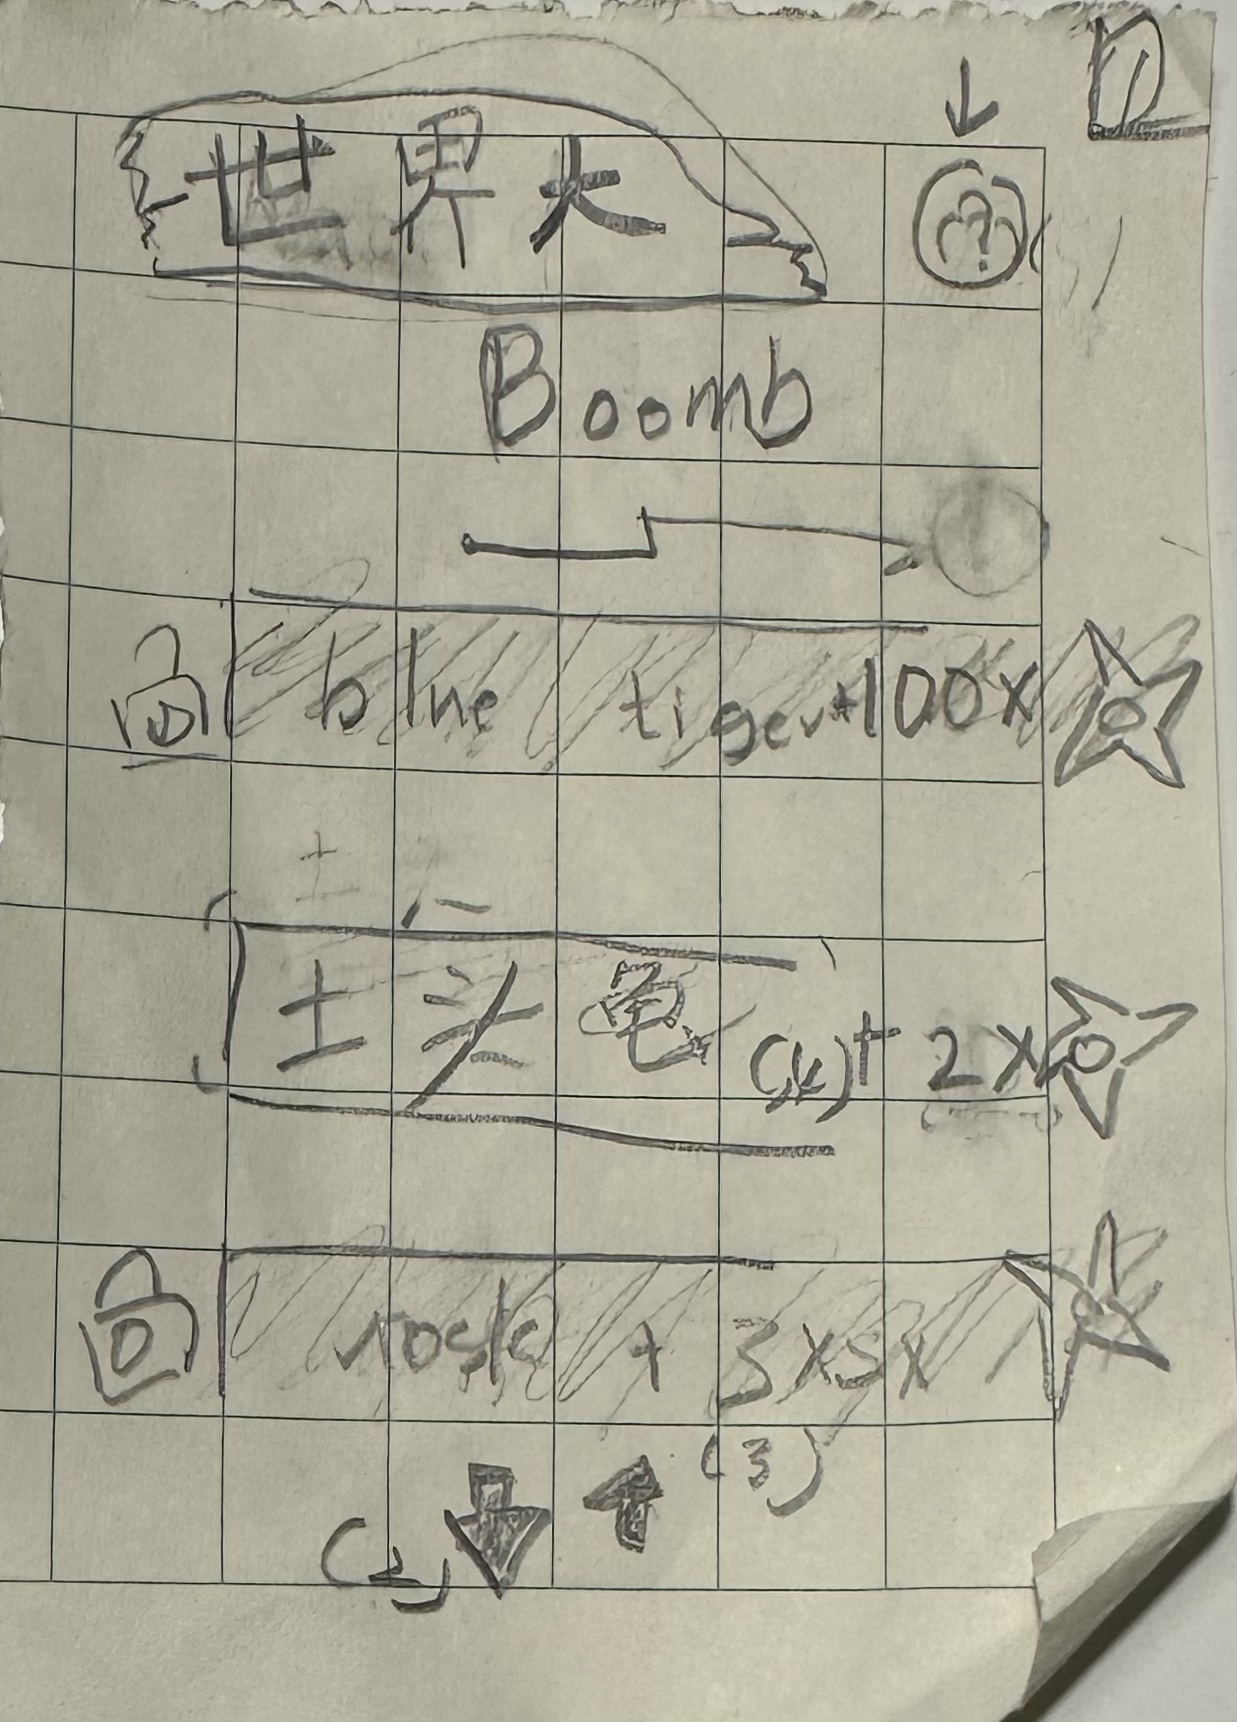 D
世界大
?
Boomb
blue tiger+100x
土
土头龟 (k)+ 2x
+ 3x5x
(3)
(2)